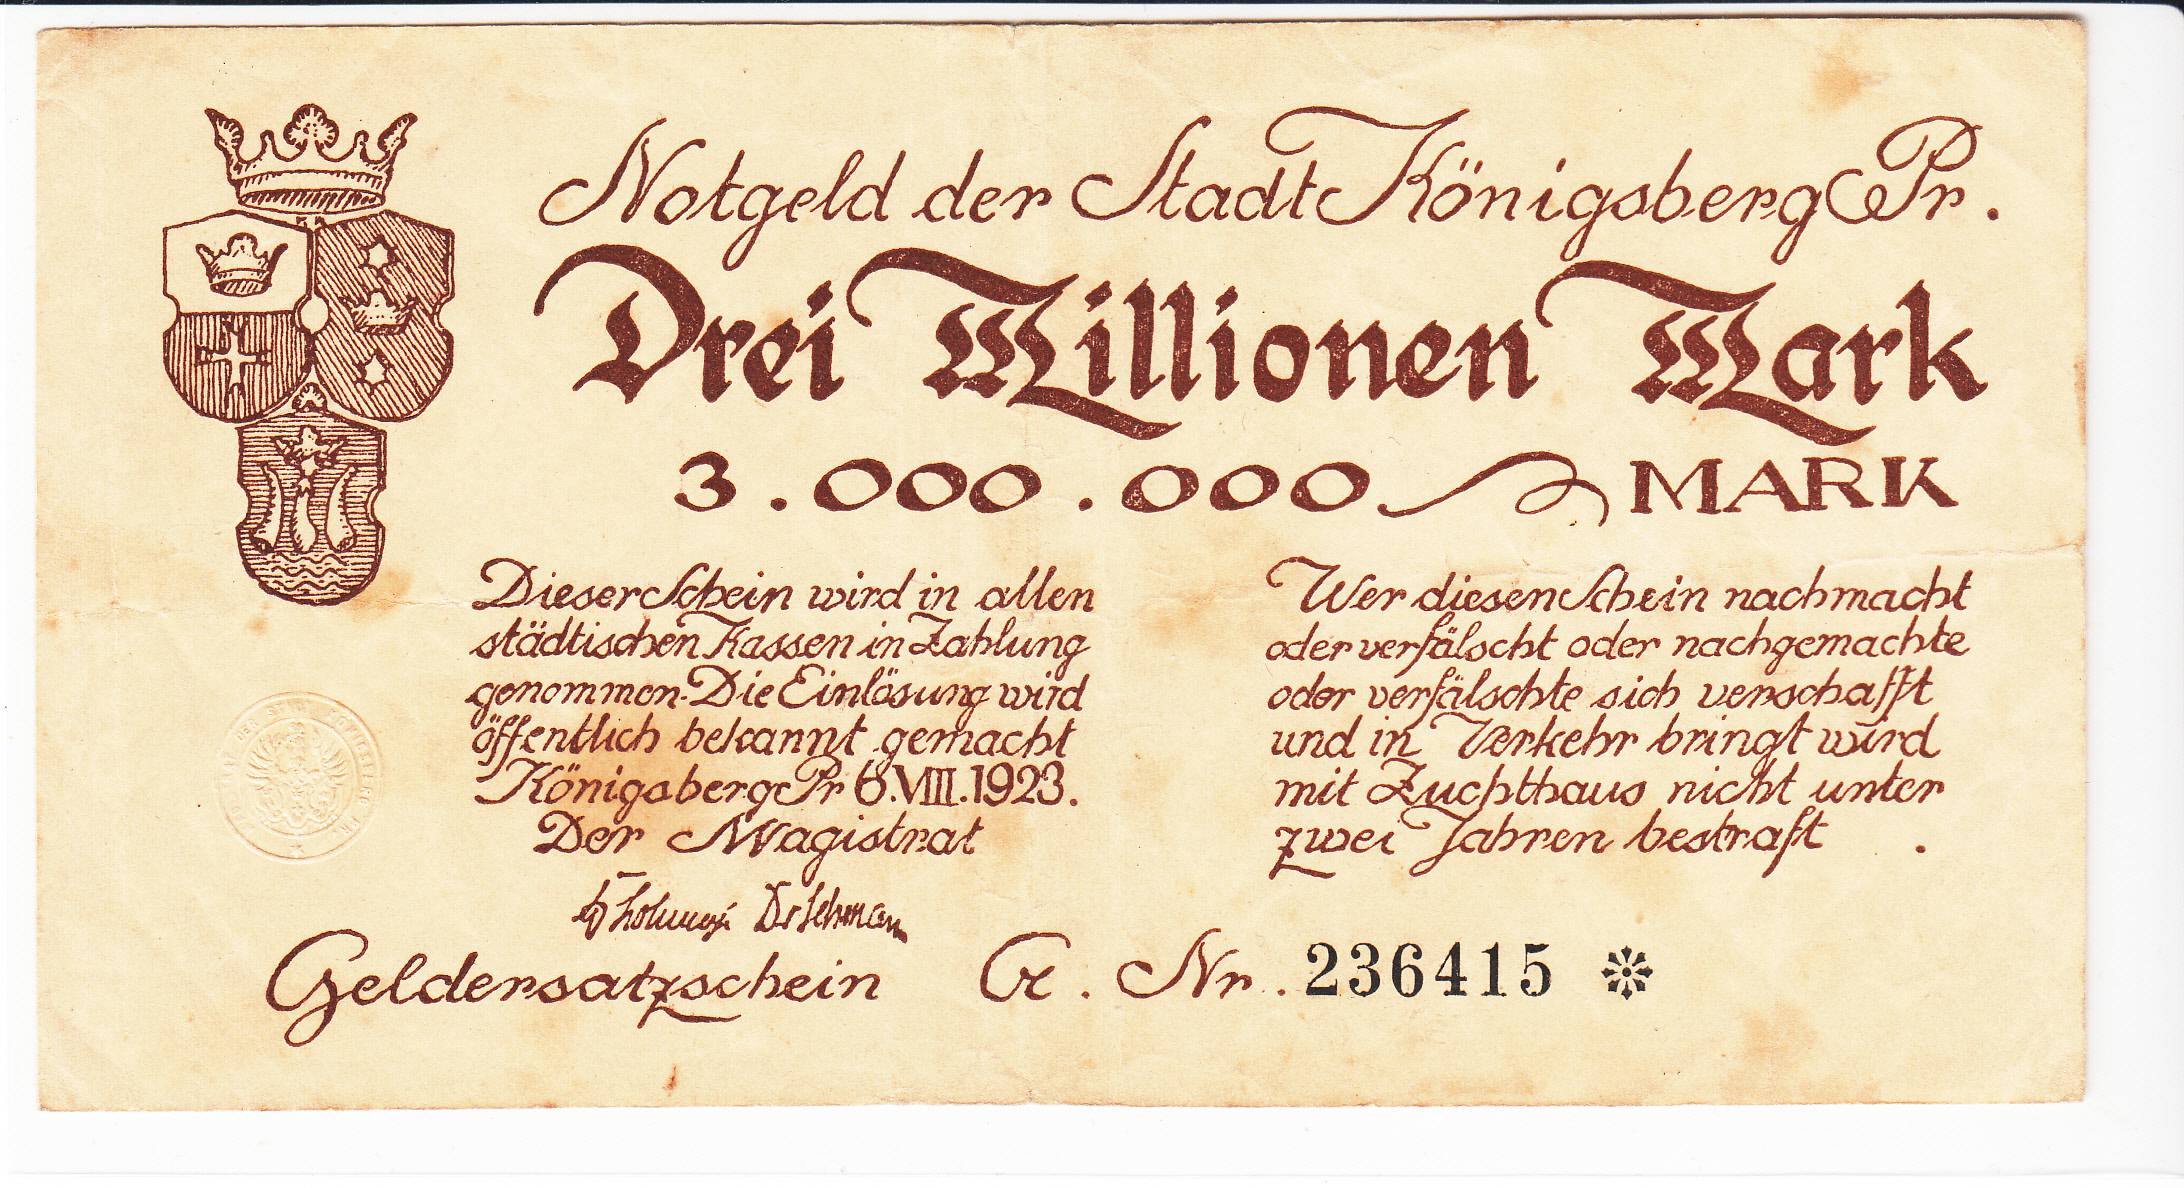 Notgeld der Stadt Königsberg Pr.
Drei Millionen Mark
3.000.000 MARK
Dieser Schein wird in allen
städtischen Kassen in Zahlung
genommen. Die Einlösung wird
öffentlich bekannt gemacht
Königsberg Pr 6.VIII.1923.
Der Magistrat
Wer diesen Schein nachmacht
oder verfälscht oder nachgemachte
oder verfälschte sich verschafft
und in Verkehr bringt wird
mit Zuchthaus nicht unter
zwei Jahren bestraft .
Geldersatzschein G. Nr. 236415